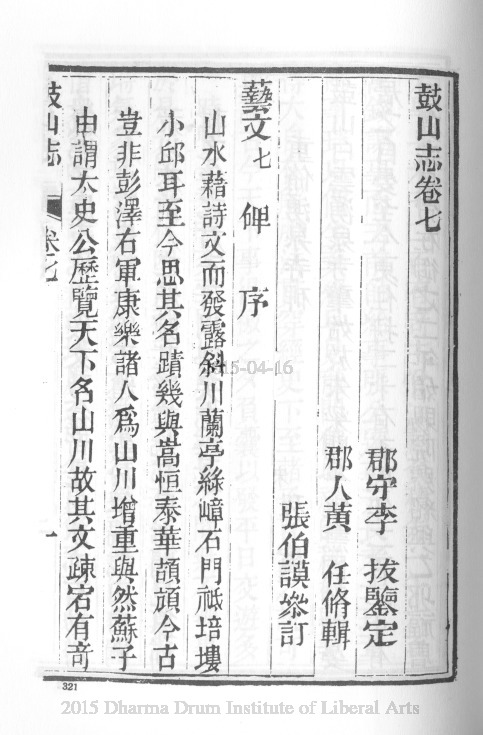 鼓山志卷七
郡守李 拔鑒定
郡人黃 任脩輯
張伯謨叅訂
藝文七 碑 序
山水藉詩文而發露斜川蘭亭綠嶂石門祗培塿
小邱耳至今思其名蹟幾與嵩恒泰華頡頏今古
豈非彭澤右軍康樂諸人爲山川增重與然蘇子
由謂太史公歷覽天下名山川故其文疎宕有奇
鼓山志 卷七 一
321
2015 Dharma Drum Institute of Liberal Arts